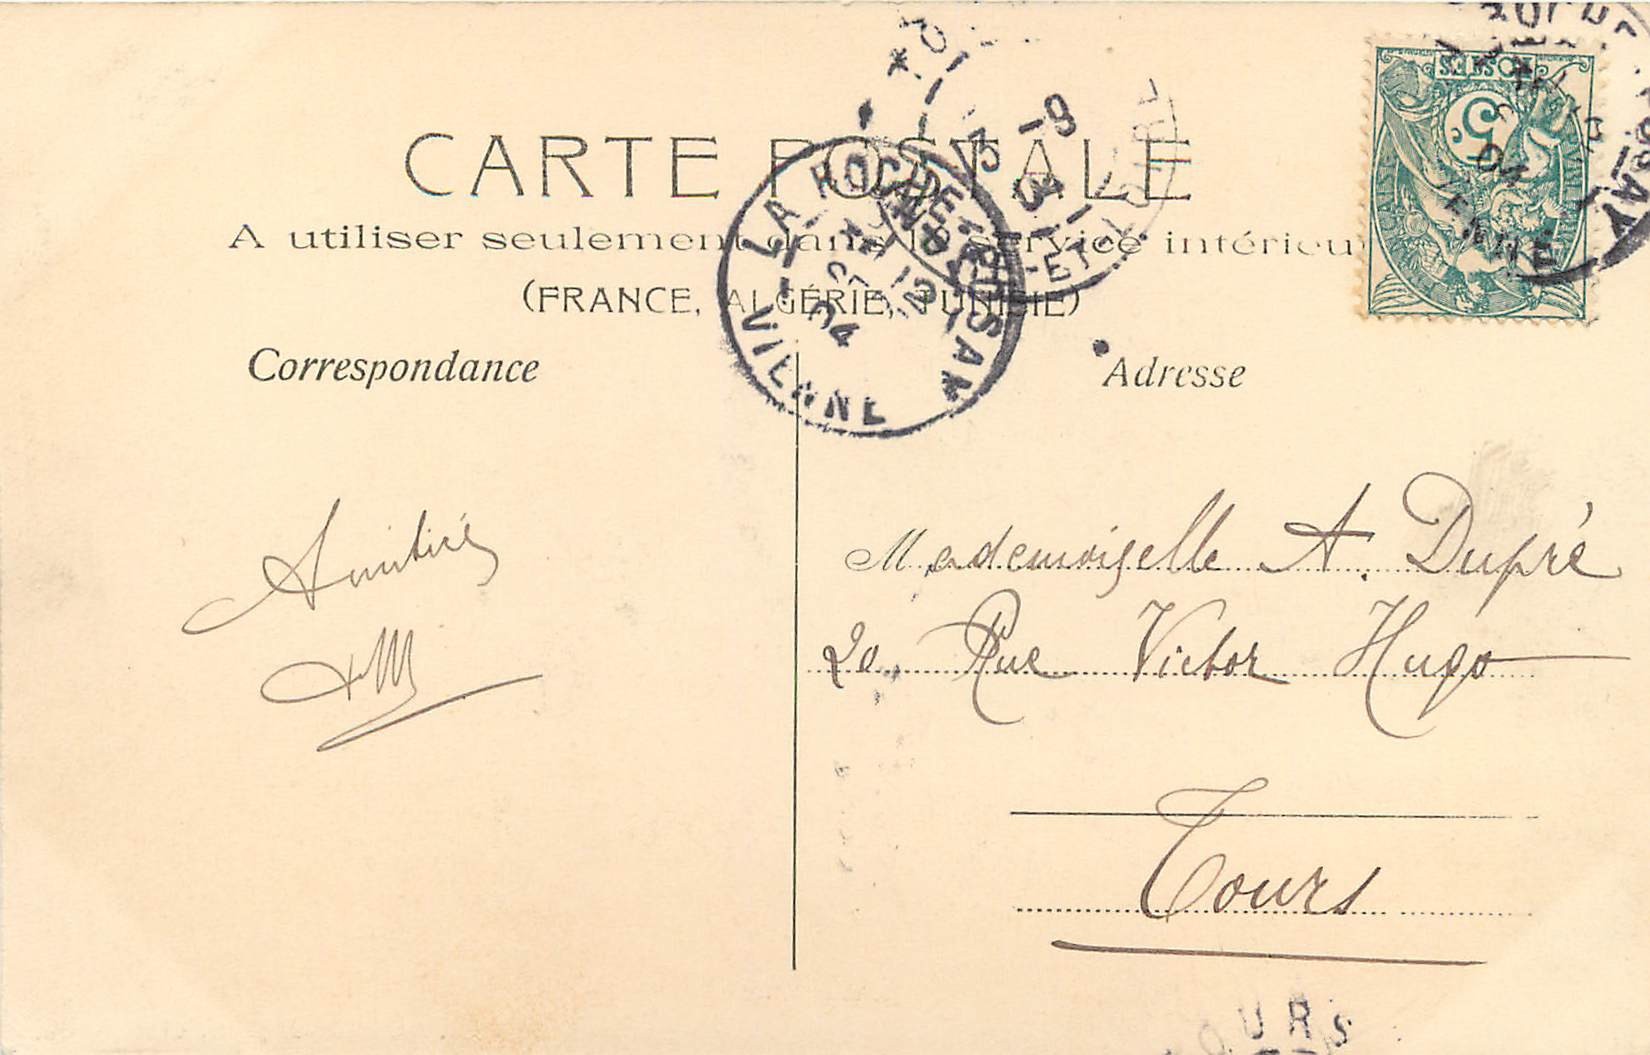 CARTE POSTALE
A utiliser seulement dans le service intérieur
(FRANCE, ALGÉRIE, TUNISIE)
Correspondance
Adresse
LA ROCHE POSAY
12
04
VIENNE
5
Amitiés
Mademoiselle A. Dupré
20, Rue Victor Hugo
Tours
TOURS